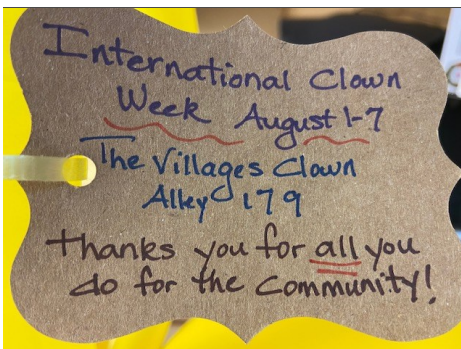 International Clown
Week August 1-7
The Villages Clown
Alley 179
Thanks you for all you
do for the Community!